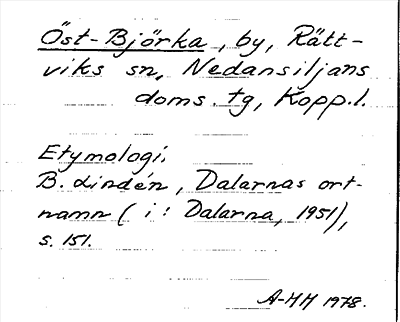 Öst-Björka, by, Rätt-
viks sn, Nedansiljans
doms. tg, Kopp.l.
Etymologi.
B. Lindén, Dalarnas ort-
namn (i: Dalarna, 1951),
s. 151.
A-HH 1978.